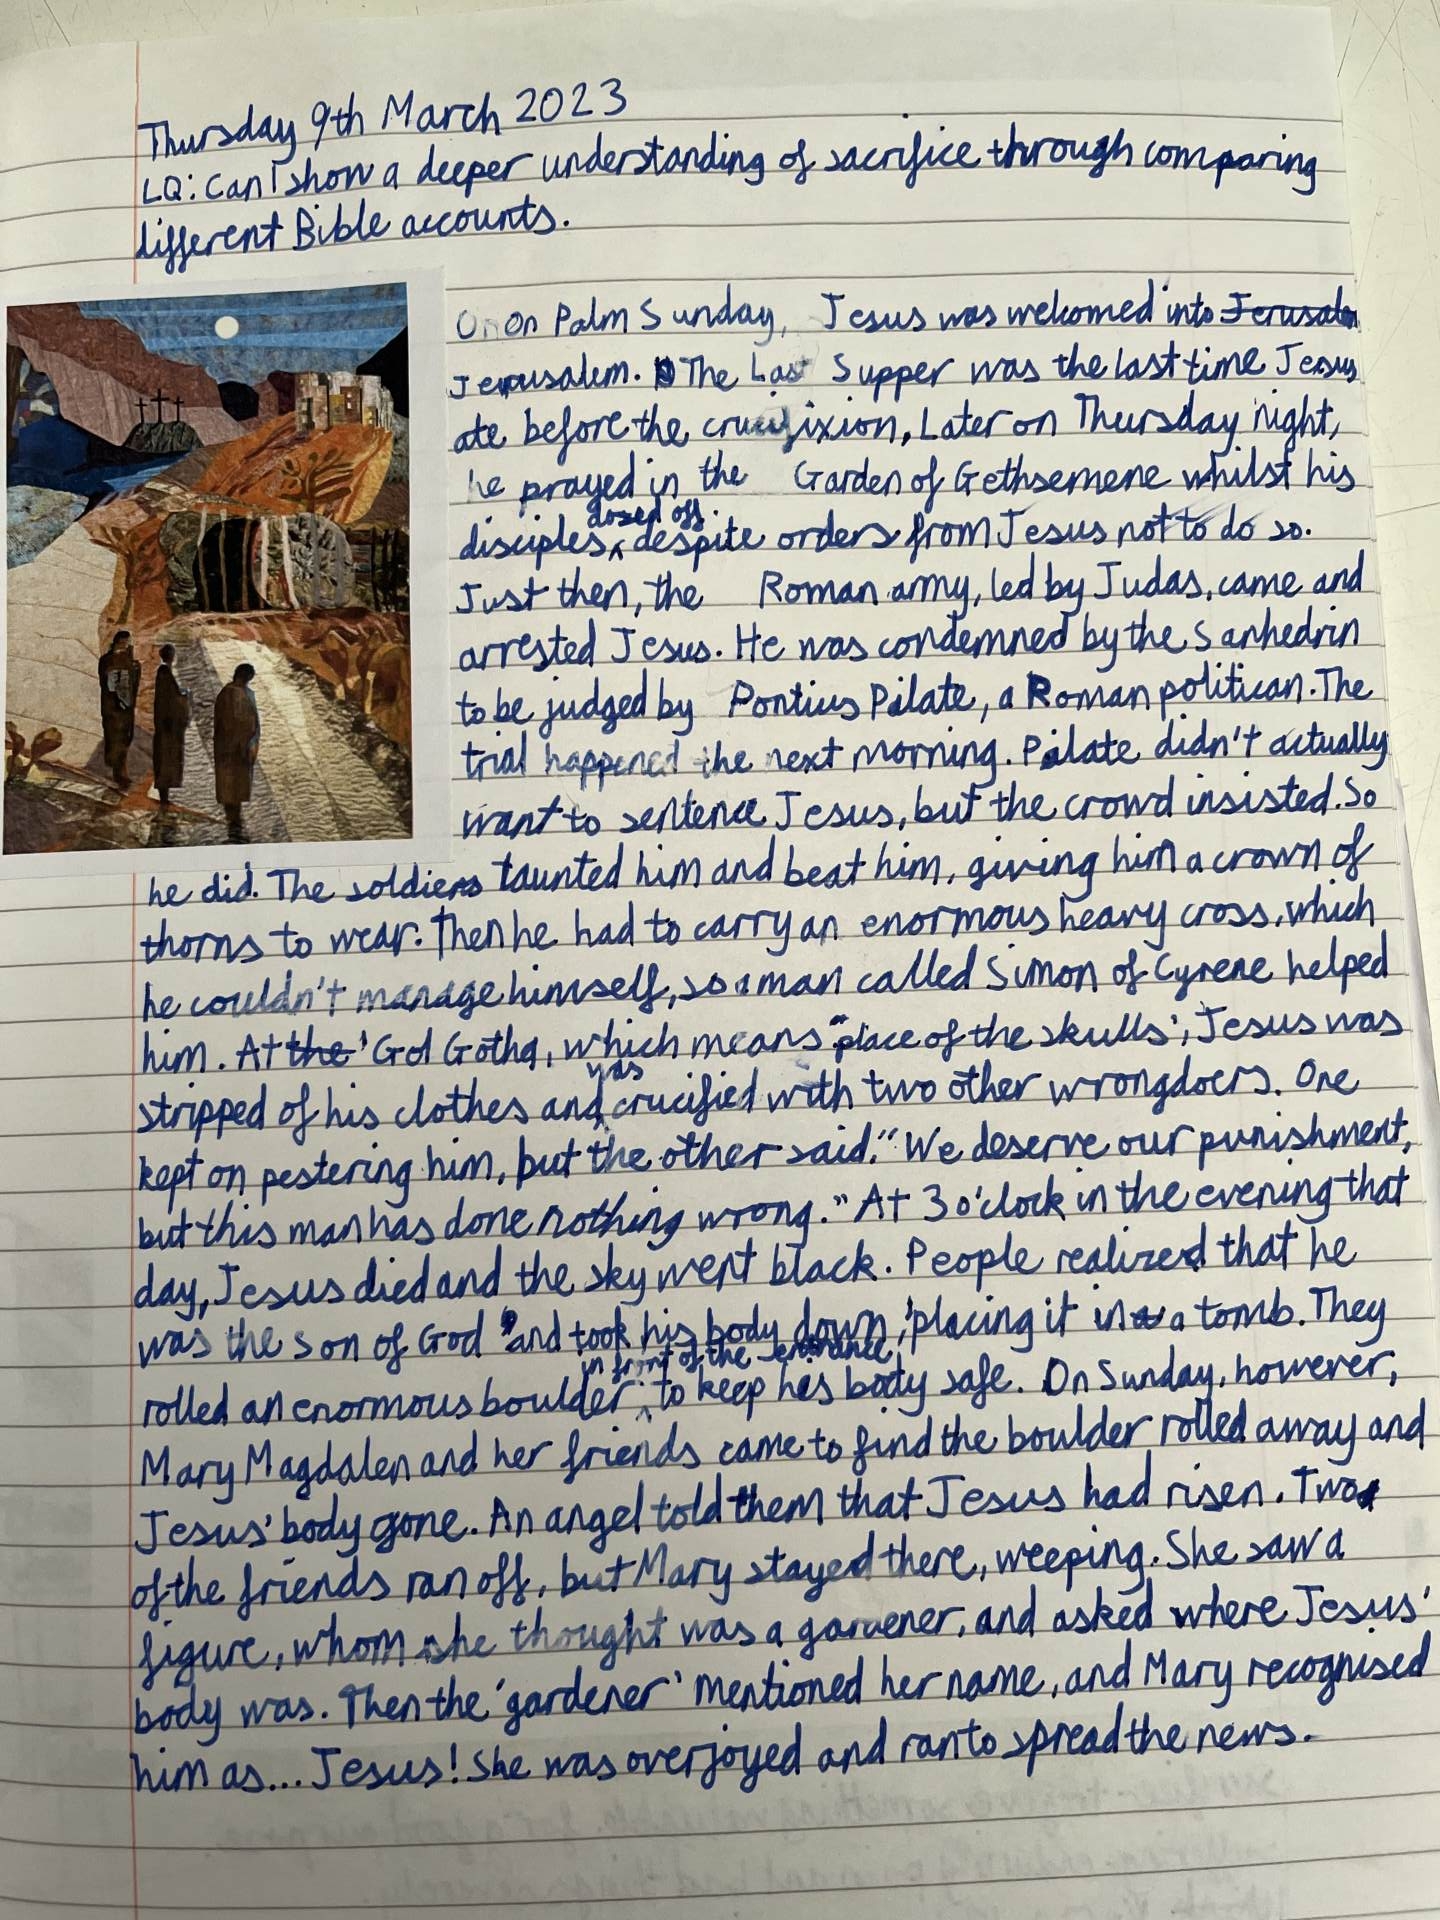 Thursday 9th March 2023
LQ: Can I show a deeper understanding of sacrifice through comparing
different Bible accounts.
On Palm Sunday, Jesus was welcomed into Jerusalem
Jerusalem. The Last Supper was the last time Jesus
ate before the crucifixion, Later on Thursday night,
he prayed in the Garden of Gethsemene whilst his
dozed off.
disciples, despite orders from Jesus not to do so.
Just then, the Roman army, led by Judas, came and
arrested Jesus. He was condemned by the Sanhedrin
to be judged by Pontius Pilate, a Roman politican. The
trial happened the next morning. Pilate didn't actually
want to sentence Jesus, but the crowd insisted. So
he did. The soldiers taunted him and beat him, giving him a crown of
thorns to wear. Then he had to carry an enormous heavy cross, which
he couldn't manage himself, so a man called Simon of Cyrene helped
him. At the 'Gol Gotha, which means "place of the skulls', Jesus was
was
stripped of his clothes and crucified with two other wrongdoers. One
kept on pestering him, but the other said, "We deserve our punishment,
but this man has done nothing wrong." At 3 o'clock in the evening that
day, Jesus died and the sky went black. People realized that he
was the son of God and took his body down, placing it in a tomb. They
in front of the entrance
rolled an enormous boulder to keep his body safe. On Sunday, however,
Mary Magdalen and her friends came to find the boulder rolled away and
Jesus' body gone. An angel told them that Jesus had risen. Two
of the friends ran off, but Mary stayed there, weeping. She saw a
figure, whom she thought was a gardener, and asked where Jesus'
body was. Then the 'gardener' mentioned her name, and Mary recognised
him as... Jesus! She was overjoyed and ran to spread the news.